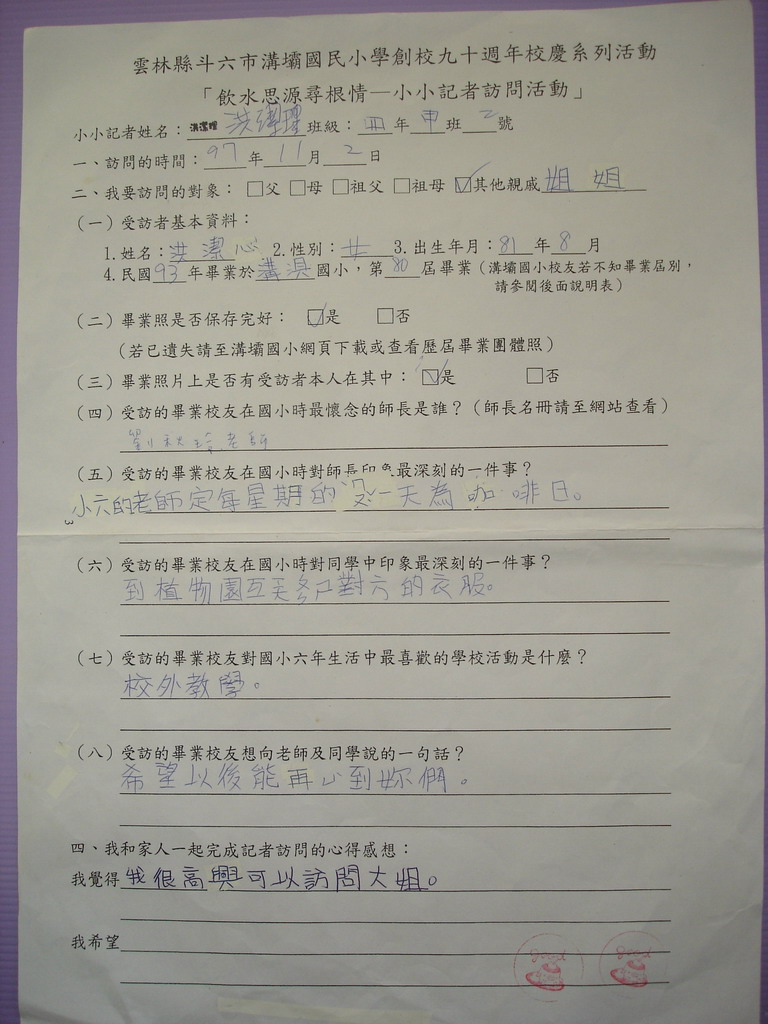 雲林縣斗六市溝壩國民小學創校九十週年校慶系列活動
「飲水思源尋根情—小小記者訪問活動」
小小記者姓名：洪潔理 班級：四年甲班2號
一、訪問的時間：97年11月2日
二、我要訪問的對象：□父 □母 □祖父 □祖母 ☑其他親戚 姐姐
（一）受訪者基本資料：
1.姓名：洪潔心 2.性別：女 3.出生年月：81年8月
4.民國93年畢業於溝壩國小，第80屆畢業（溝壩國小校友若不知畢業屆別，
請參閱後面說明表）
（二）畢業照是否保存完好： ☑是 □否
（若已遺失請至溝壩國小網頁下載或查看歷屆畢業團體照）
（三）畢業照片上是否有受訪者本人在其中：☑是 □否
（四）受訪的畢業校友在國小時最懷念的師長是誰？（師長名冊請至網站查看）
劉秋玲老師
（五）受訪的畢業校友在國小時對師長印象最深刻的一件事？
小六的老師定每星期的 一天為咖啡日。
3
（六）受訪的畢業校友在國小時對同學中印象最深刻的一件事？
到植物園互丟 對方的衣服。
（七）受訪的畢業校友對國小六年生活中最喜歡的學校活動是什麼？
校外教學。
（八）受訪的畢業校友想向老師及同學說的一句話？
希望以後能再 到妳們。
四、我和家人一起完成記者訪問的心得感想：
我覺得我很高興可以訪問大姐。
我希望
good good